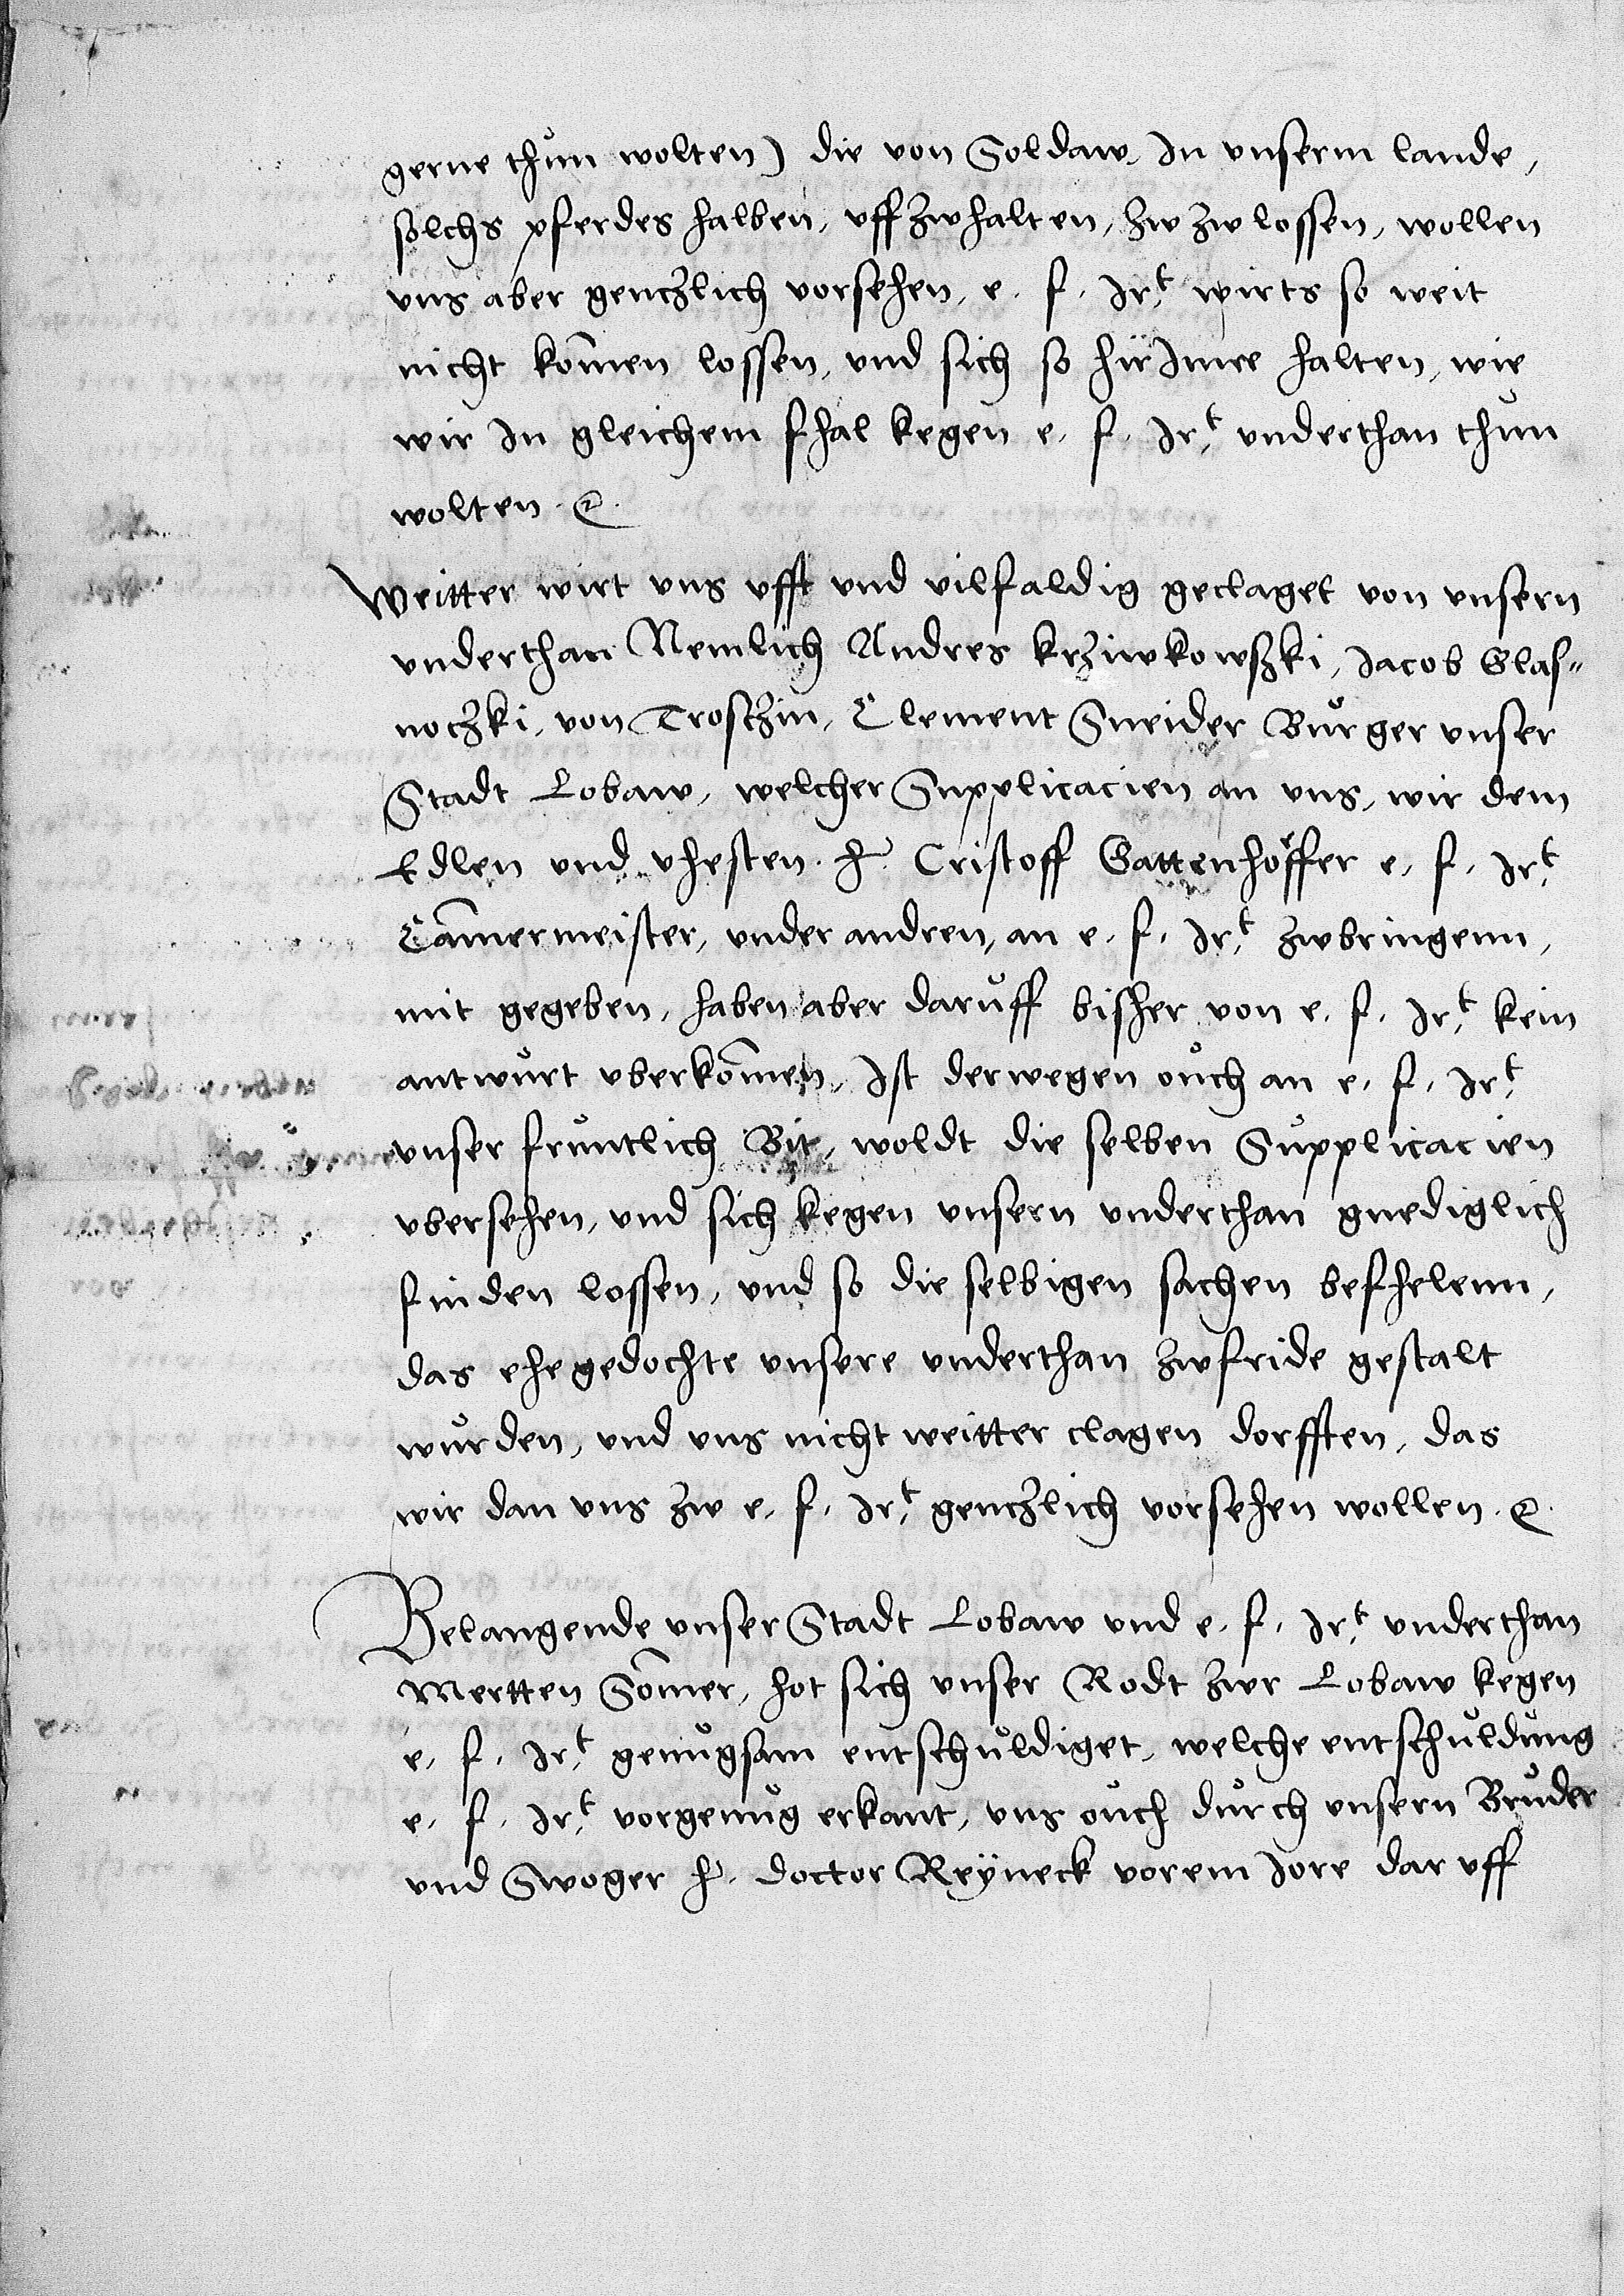 gerne thůn wolten) die von Soldaw In vnserm lande,
solchs pferdes halben, vff zwhalten, zw zw lossen, wollen
vns aber genczlich vorsehen, e. f. Irt. wirts so weit
nicht kom̄en lossen, vnd sich so hir Inne halten, wie
wir In gleichem fhal kegen e. f. Irt. vnderthan thůn
wolten. ꝛc.
Weitter wirt vns vfft vnd vilfaldig geclaget von vnsern
vnderthan Nemlich Andres krziwkowszki, Jacob Glas„
noczki, von Trosczin, Clement Sneider Bůrger vnser
Stadt Lobaw, welcher Supplicacien an vns, wir dem
Edlen vnd vhesten. h. Cristoff Gattenhöffer e. f. Irt.
Cam̄ermeister, vnder andren, an e. f. Irt. zwbringenn,
mit gegeben, haben aber darůff bisher von e. f. Irt. kein
antwůrt vberkom̄en, Ist derwegen oůch an e. f. Irt.
vnser frůntlich Bit, woldt die selben Sůpplicacien
vbersehen, vnd sich kegen vnsern vnderthan gnediglich
finden lossen, vnd so die selbigen sachen befhelenn,
das ehegedochte vnsere vnderthan zwfride gestalt
wůrden, vnd vns nicht weitter clagen dorfften, das
wir dan vns zw e. f. Irt. genczlich vorsehen wollen. ꝛc.
Belangende vnser Stadt Lobaw vnd e. f. Irt. vnderthan
Mertten Som̄er, hot sich vnser Rodt zwr Lobaw kegen
e. f. Irt. genůgsam entschůldiget, welche entschůldůng
e. f. Irt. vorgenůg erkant, vns oůch důrch vnsern Brůder
vnd Swoger h. Doctor Reÿneck vorem Jore dar vff